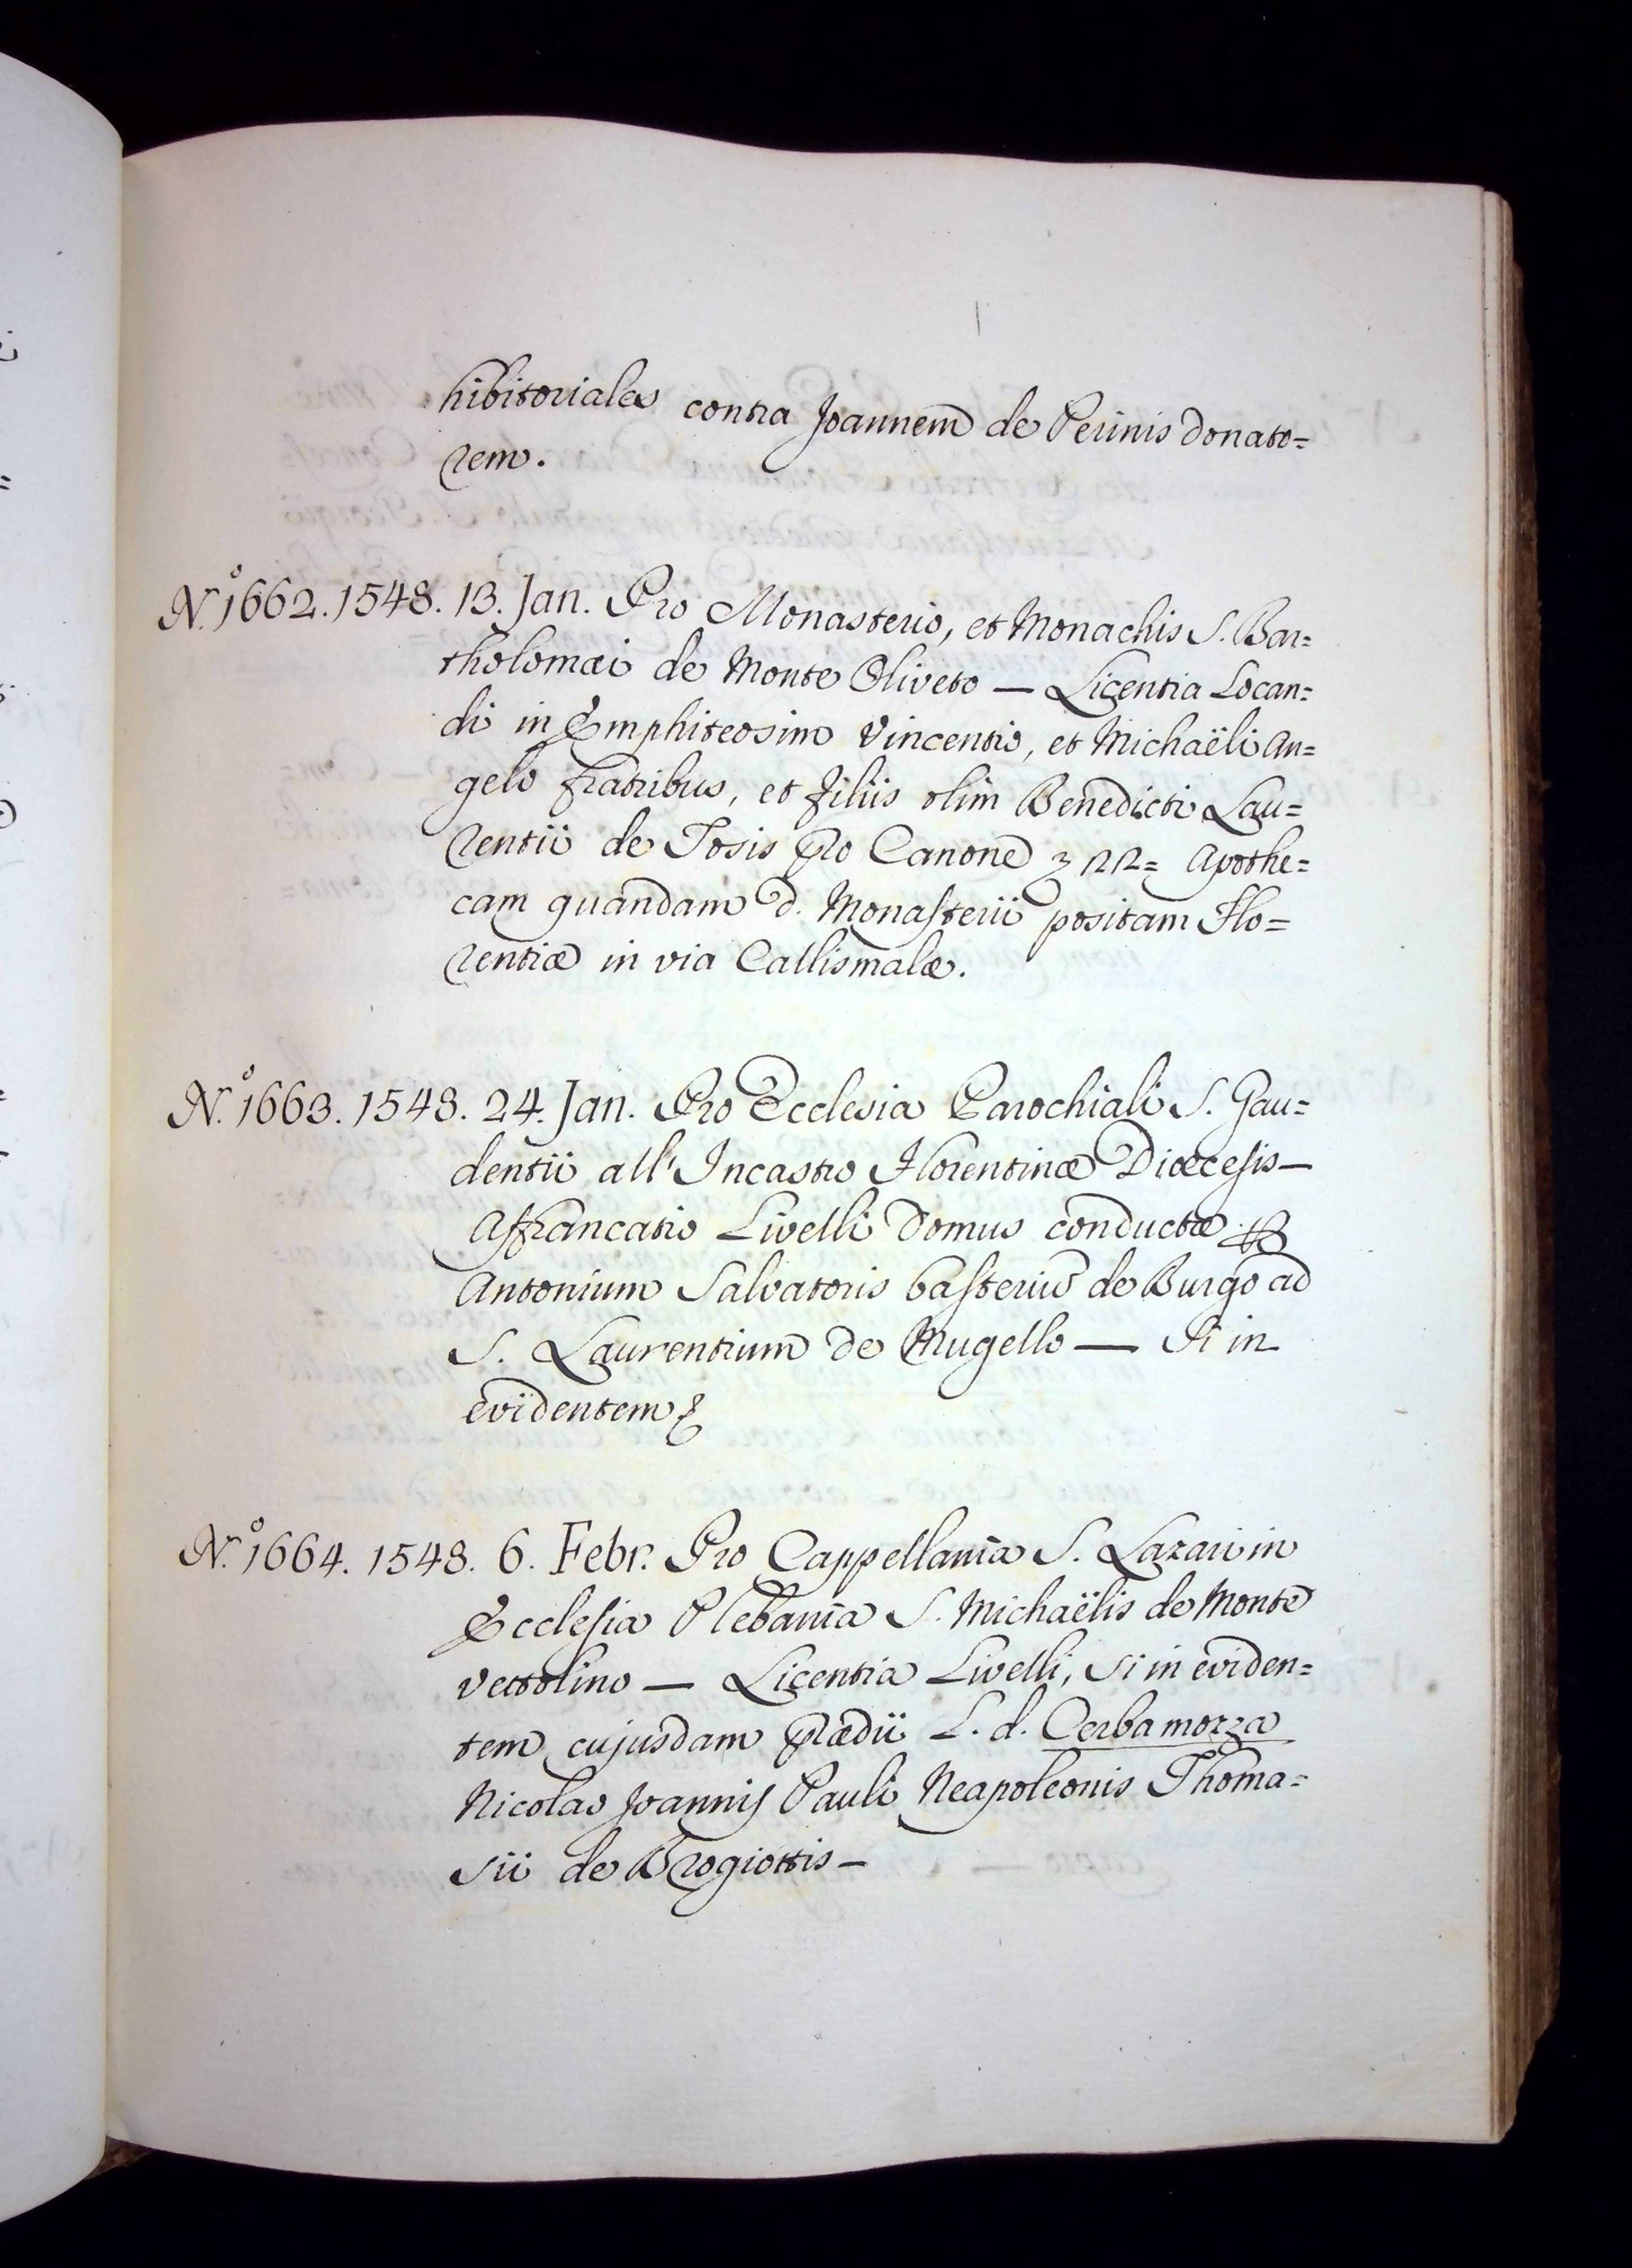 hibitoriales contra Joannem de Perinis donato=
rem.
N.º 1662. 1548. 13. Jan. Pro Monasterio, et Monachis S. Bar=
tholomæi de Monte Oliveto — Licentia Locan=
di in Emphiteosim Vincentio, et Michaëli An=
gelo fratribus, et filiis olim Benedicti Lau=
rentii de Tosis pro Canone Apothe=
cam quandam d. Monasterii positam Flo=
rentiæ in via Callismalæ.
N.º 1663. 1548. 24. Jan. Pro Ecclesia Parochiali S. Gau=
dentii all' Incastro Florentinæ Diœcesis —
Affrancatio Livelli domus conductæ
Antonium Salvatoris basterium de Burgo ad
S. Laurentium de Mugello — Si in
evidentem
N.º 1664. 1548. 6. Febr. Pro Cappellania S. Lazari in
Ecclesia Plebania S. Michaëlis de Monte
vettolino — Licentia Livelli, si in eviden=
tem cujusdam prædii L. d. Cerbamozza
Nicolao Joannis Pauli Neapoleonis Thoma=
sii de Brogiottis —